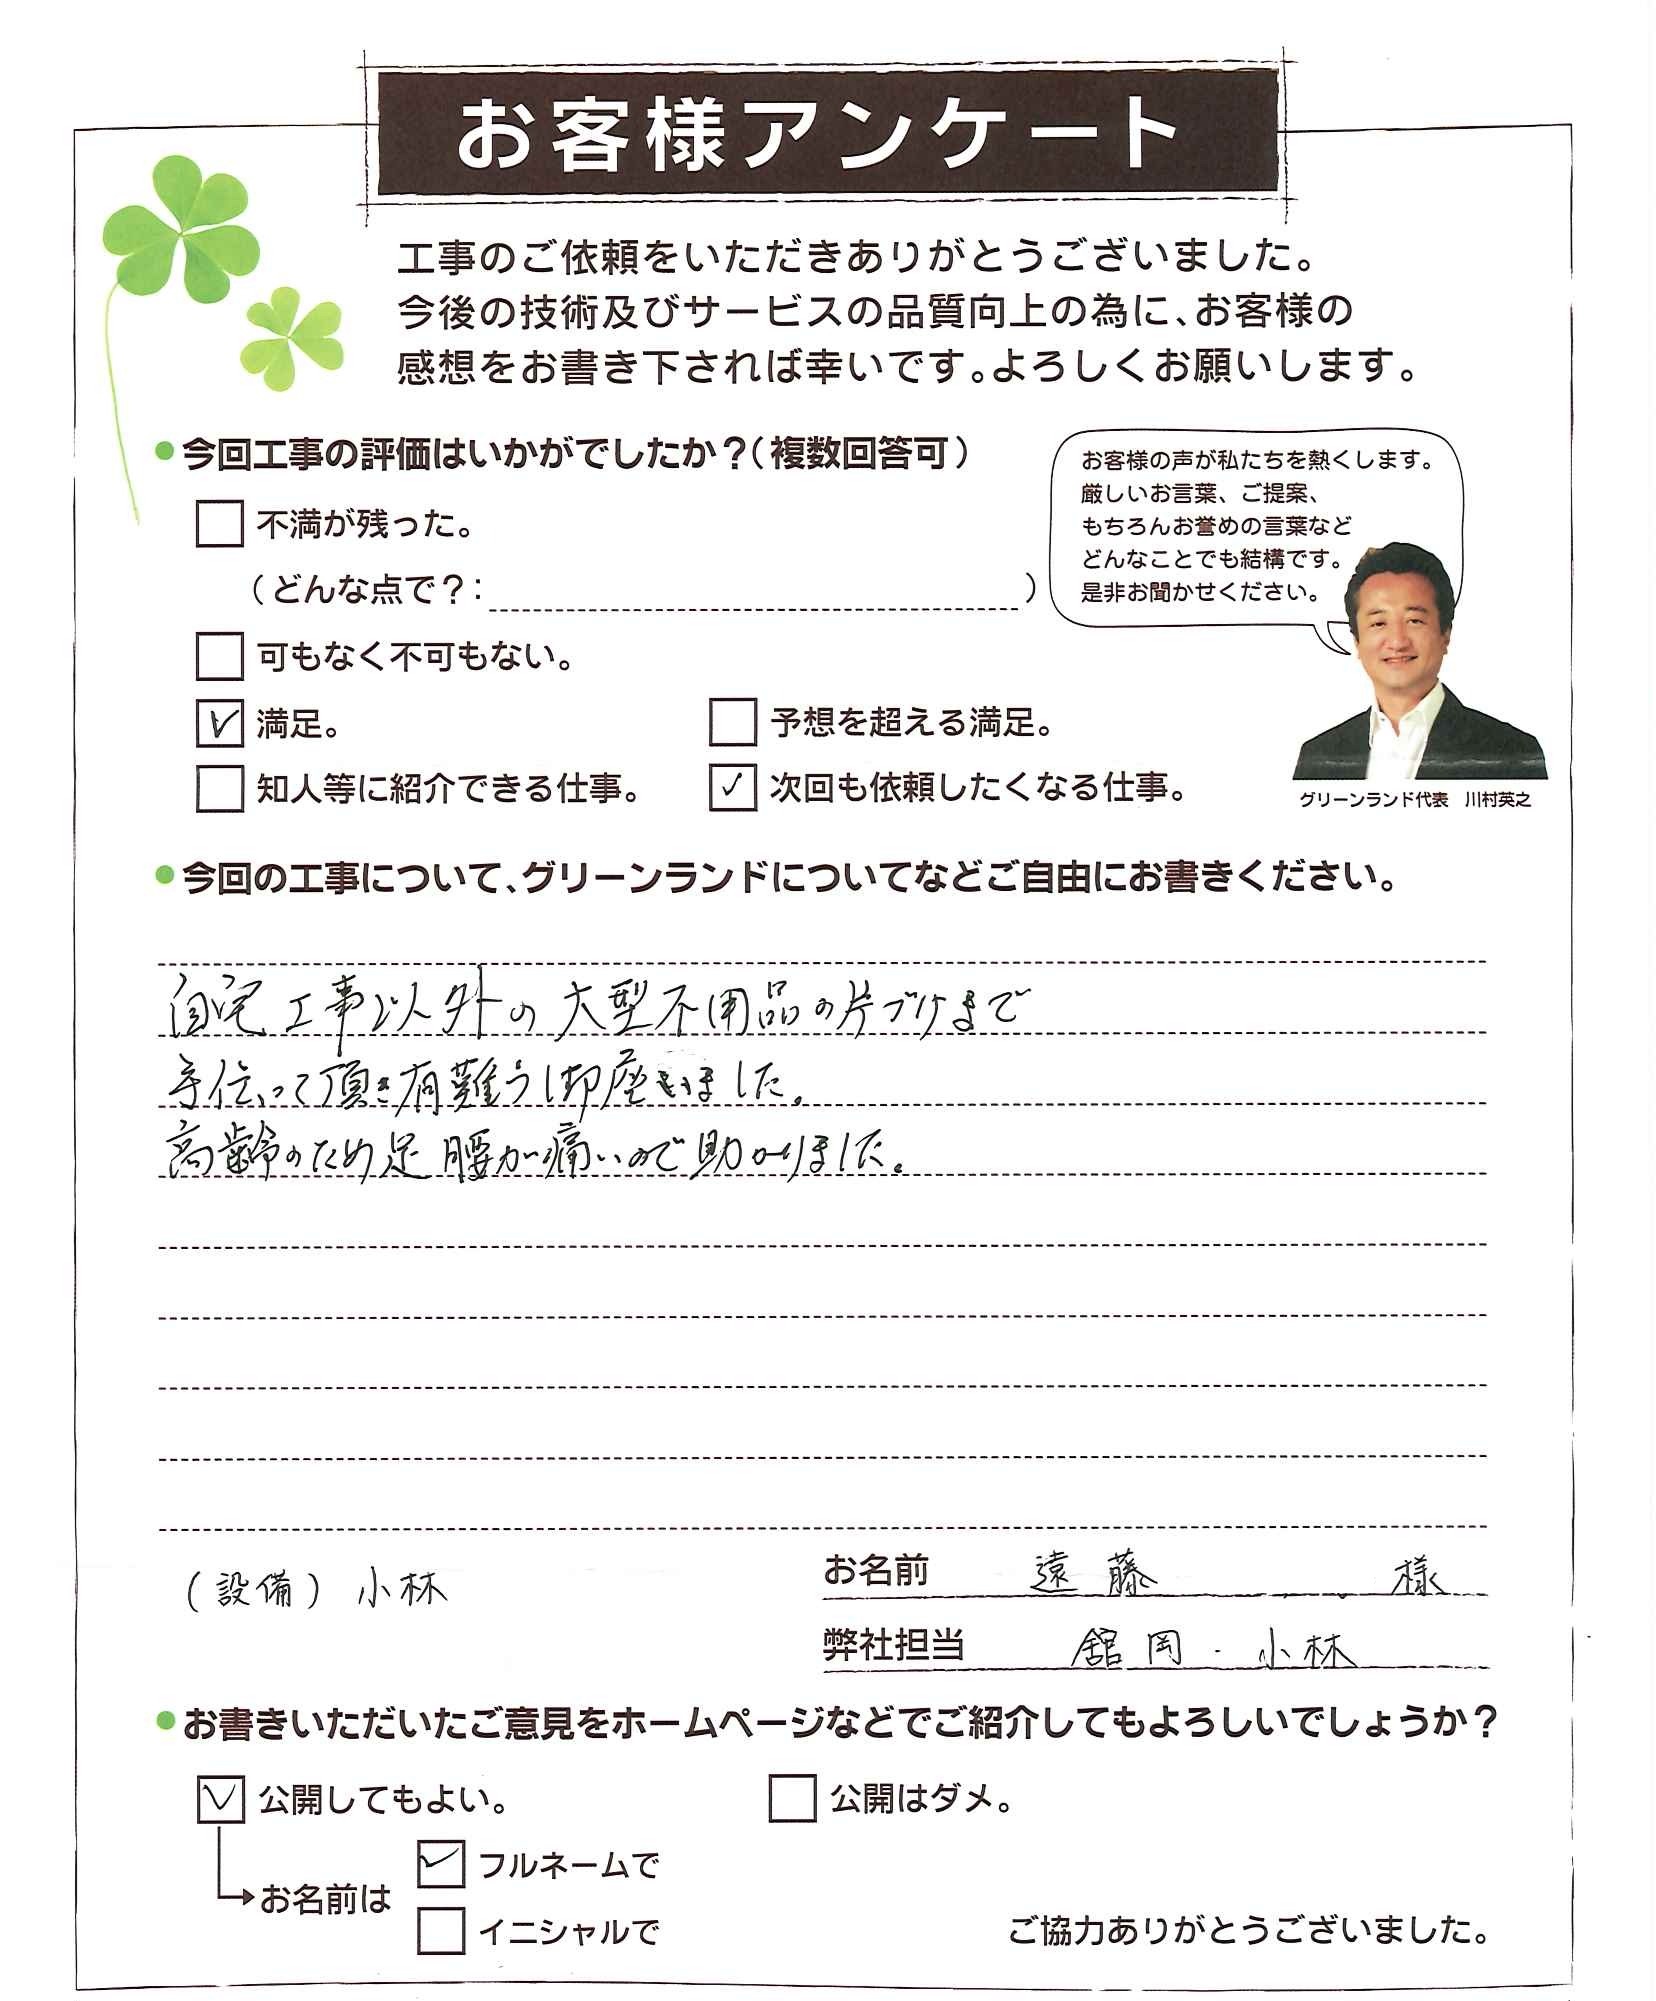 お客様アンケート
工事のご依頼をいただきありがとうございました。
今後の技術及びサービスの品質向上の為に、お客様の
感想をお書き下されば幸いです。よろしくお願いします。
●今回工事の評価はいかがでしたか？（複数回答可）
お客様の声が私たちを熱くします。
厳しいお言葉、ご提案、
もちろんお誉めの言葉など
どんなことでも結構です。
是非お聞かせください。
不満が残った。
（どんな点で？：　）
可もなく不可もない。
満足。
予想を超える満足。
知人等に紹介できる仕事。
次回も依頼したくなる仕事。
グリーンランド代表　川村英之
●今回の工事について、グリーンランドについてなどご自由にお書きください。
自宅工事以外の大型不用品の片づけまで
手伝って頂き有難う御座いました。
高齢のため足腰が痛いので助かりました。
（設備）小林
お名前　遠藤　様
弊社担当　舘岡・小林
●お書きいただいたご意見をホームページなどでご紹介してもよろしいでしょうか？
公開してもよい。
公開はダメ。
お名前は
フルネームで
イニシャルで
ご協力ありがとうございました。